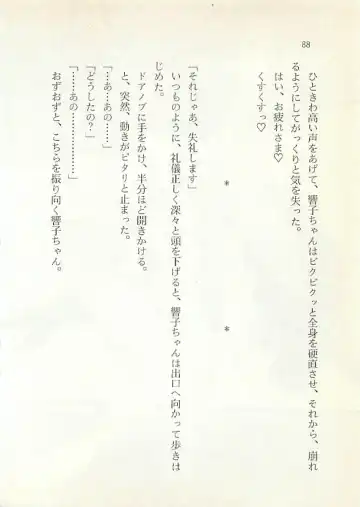 88
ひときわ高い声をあげて、響子ちゃんはビクビクッと全身を硬直させ、それから、崩れ
るようにしてがっくりと気を失った。
はい、お疲れさま♡
くすくすっ♡
＊　＊
「それじゃあ、失礼します」
いつものように、礼儀正しく深々と頭を下げると、響子ちゃんは出口へ向かって歩きは
じめた。
ドアノブに手をかけ、半分ほど開きかける。
と、突然、動きがピタリと止まった。
「…あ…あの……」
「どうしたの？」
「……あの…………」
「…………」
おずおずと、こちらを振り向く響子ちゃん。